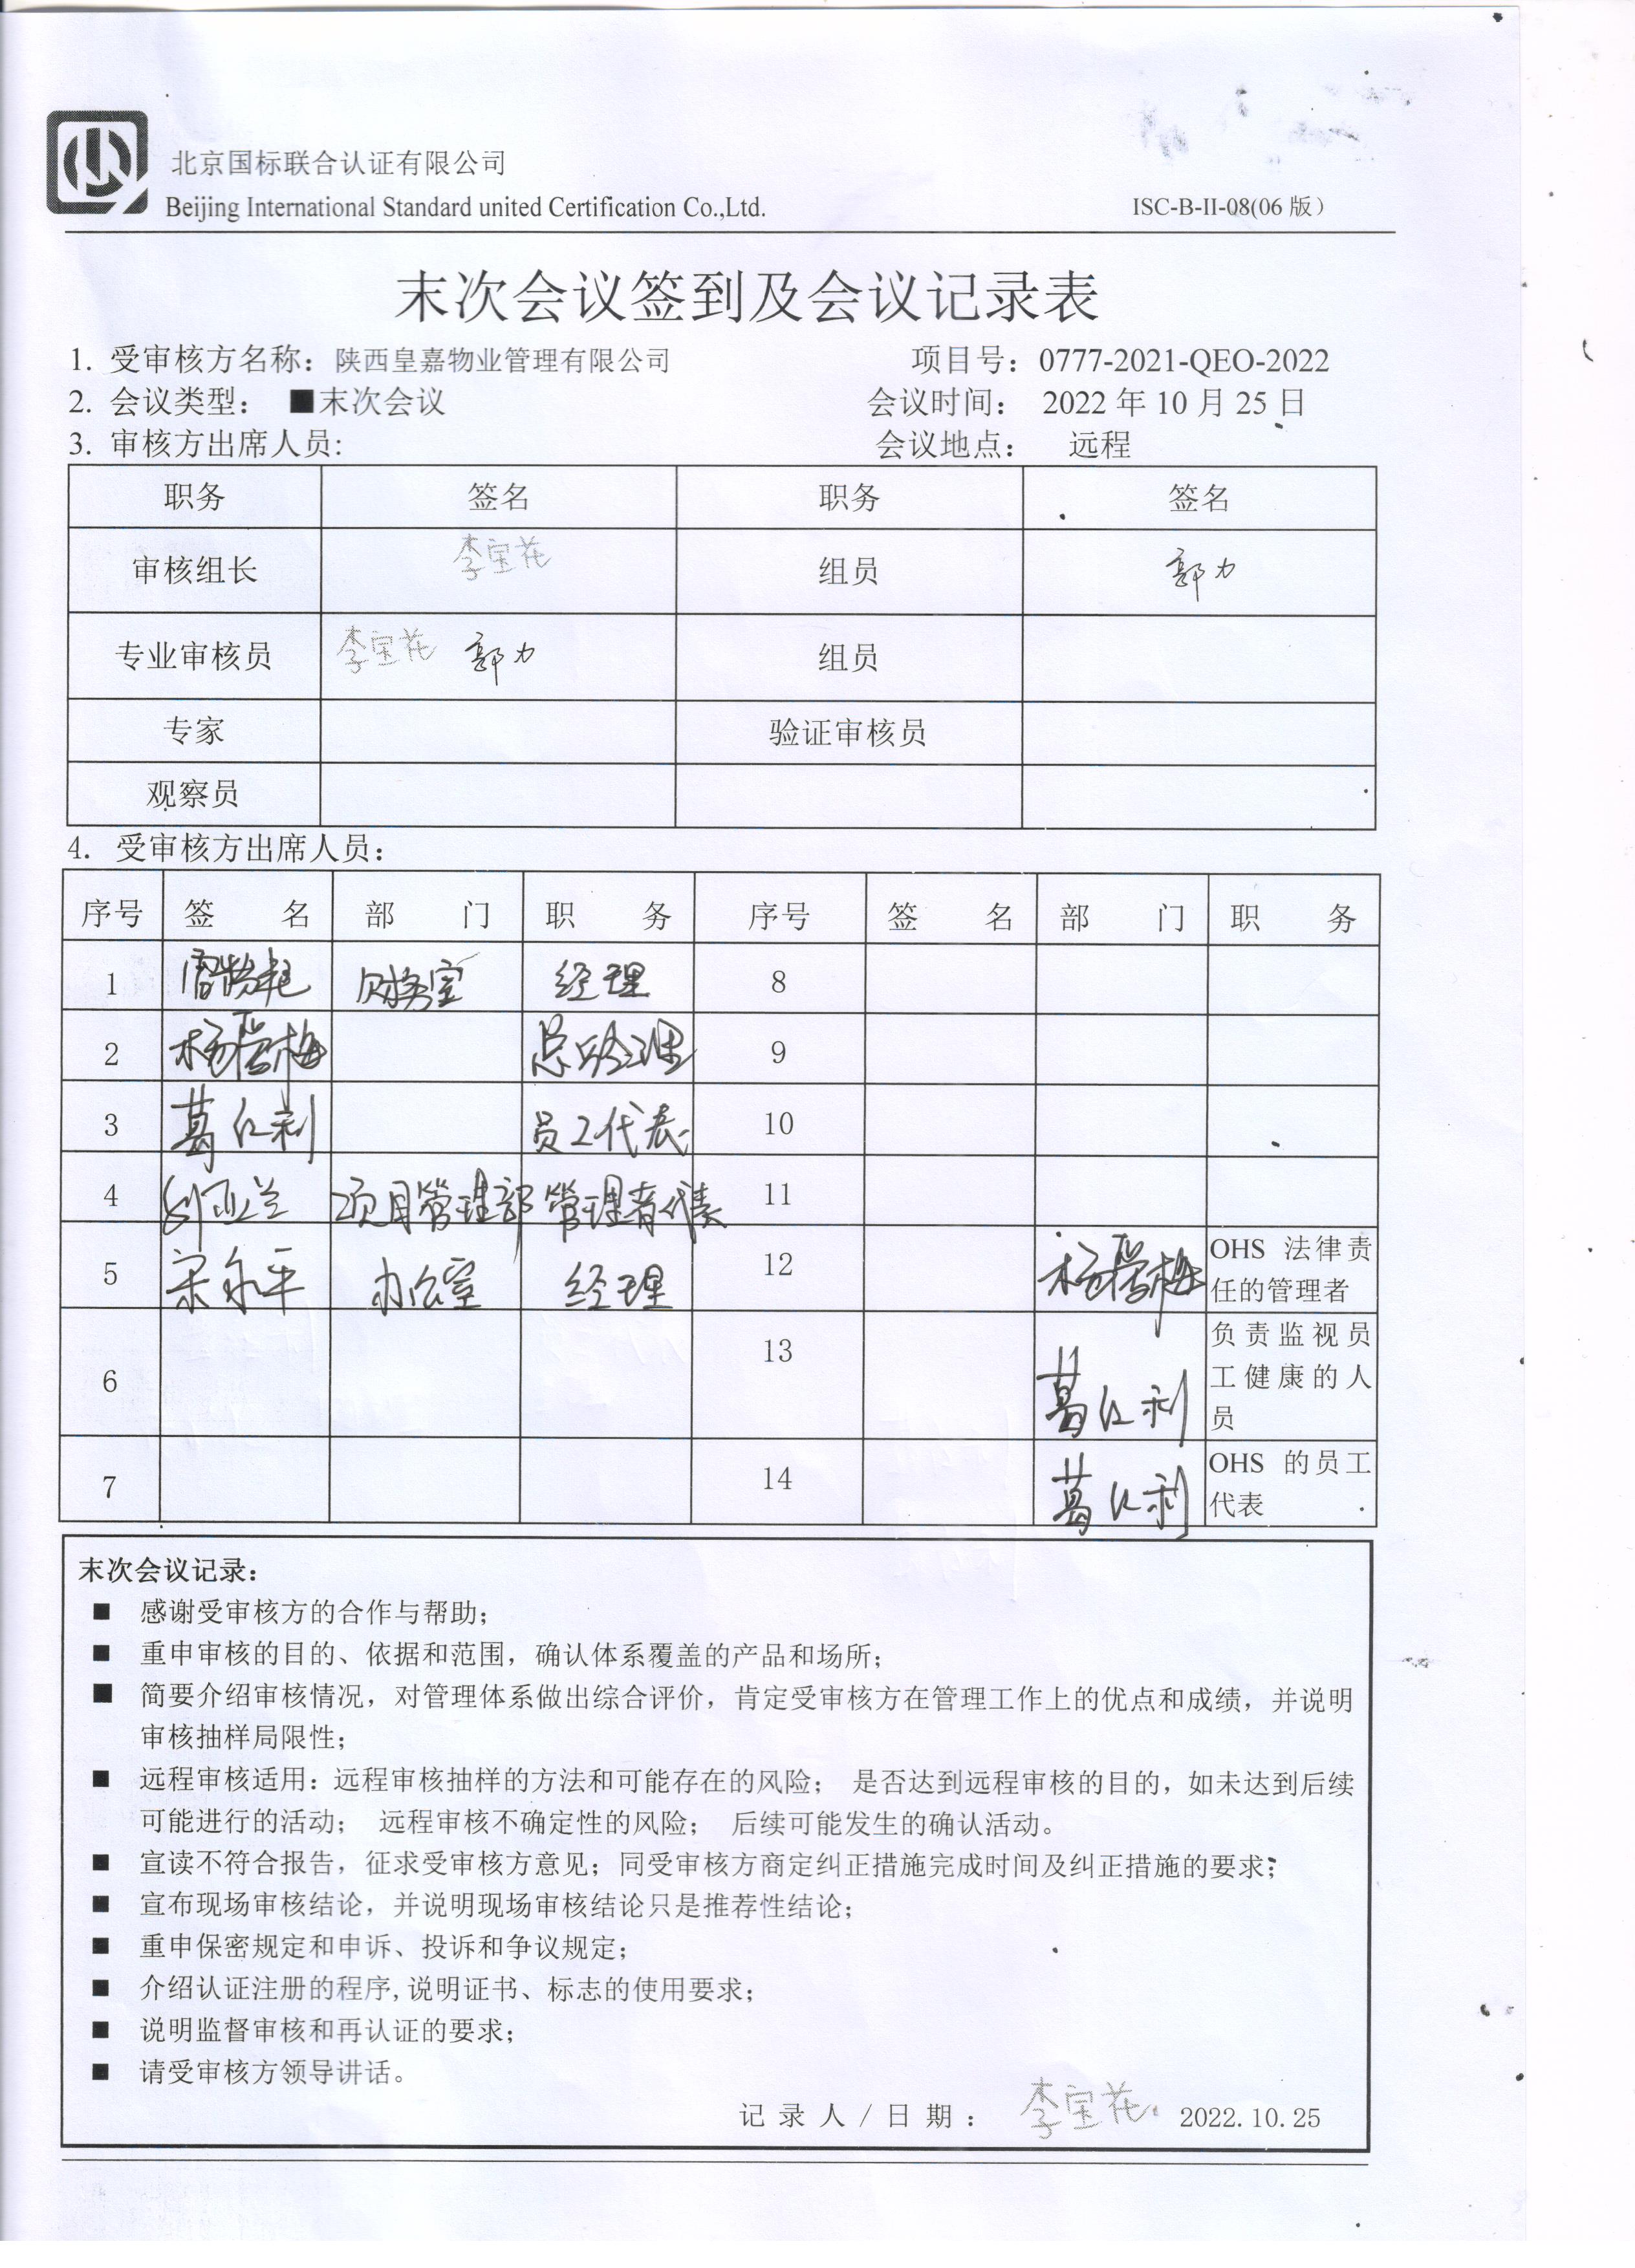 北京国标联合认证有限公司
Beijing International Standard united Certification Co.,Ltd. ISC-B-II-08(06 版)
末次会议签到及会议记录表
1. 受审核方名称：陕西皇嘉物业管理有限公司 项目号：0777-2021-QEO-2022
2. 会议类型： ■末次会议 会议时间： 2022 年 10 月 25 日
3. 审核方出席人员: 会议地点： 远程
职务 签名 职务 签名
审核组长 李宝花 组员 郭力
专业审核员 李宝花 郭力 组员
专家 验证审核员
观察员
4. 受审核方出席人员：
序号 签 名 部 门 职 务 序号 签 名 部 门 职 务
1 财务室 经理 8
2 总经理 9
3 葛红利 员工代表 10
4 刘亚兰 项目管理部 管理者代表 11
5 宋永平 办公室 经理 12 OHS 法律责
任的管理者
6 13 葛红利 负责监视员
工健康的人
员
7 14 葛红利 OHS 的员工
代表
末次会议记录：
■ 感谢受审核方的合作与帮助；
■ 重申审核的目的、依据和范围，确认体系覆盖的产品和场所；
■ 简要介绍审核情况，对管理体系做出综合评价，肯定受审核方在管理工作上的优点和成绩，并说明
审核抽样局限性；
■ 远程审核适用：远程审核抽样的方法和可能存在的风险； 是否达到远程审核的目的，如未达到后续
可能进行的活动； 远程审核不确定性的风险； 后续可能发生的确认活动。
■ 宣读不符合报告，征求受审核方意见；同受审核方商定纠正措施完成时间及纠正措施的要求；
■ 宣布现场审核结论，并说明现场审核结论只是推荐性结论；
■ 重申保密规定和申诉、投诉和争议规定；
■ 介绍认证注册的程序,说明证书、标志的使用要求；
■ 说明监督审核和再认证的要求；
■ 请受审核方领导讲话。
记录人/日期： 李宝花 2022.10.25